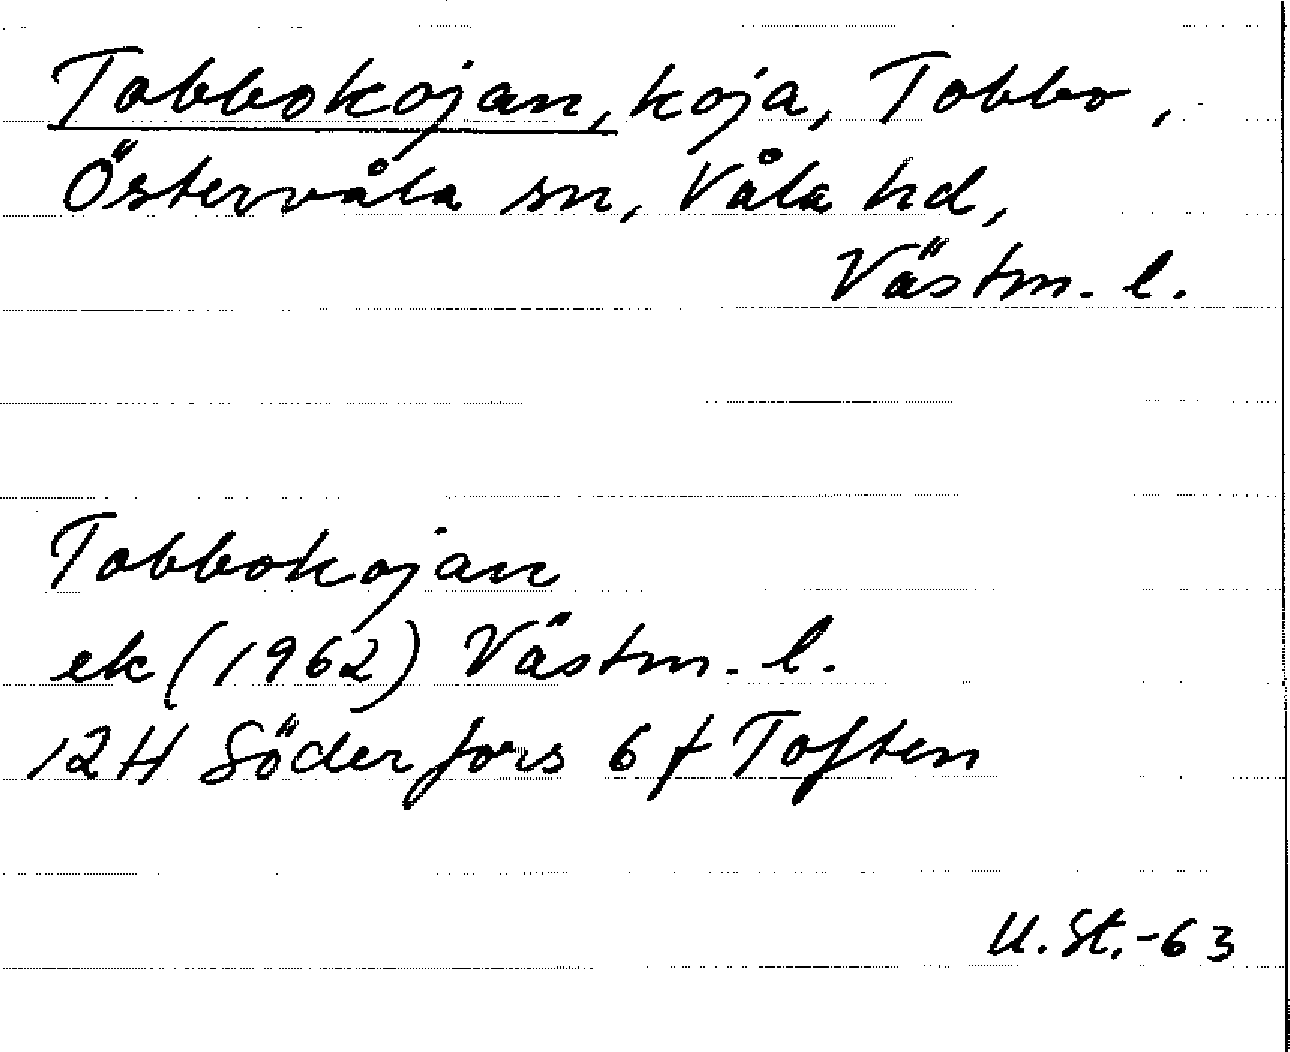 Tobbokojan, koja, Tobbo,
Östervåla sn, Våla hd,
Västm. l.
Tobbokojan
ek (1962) Västm. l.
12H Söderfors 6 f Toften
U. St. -63